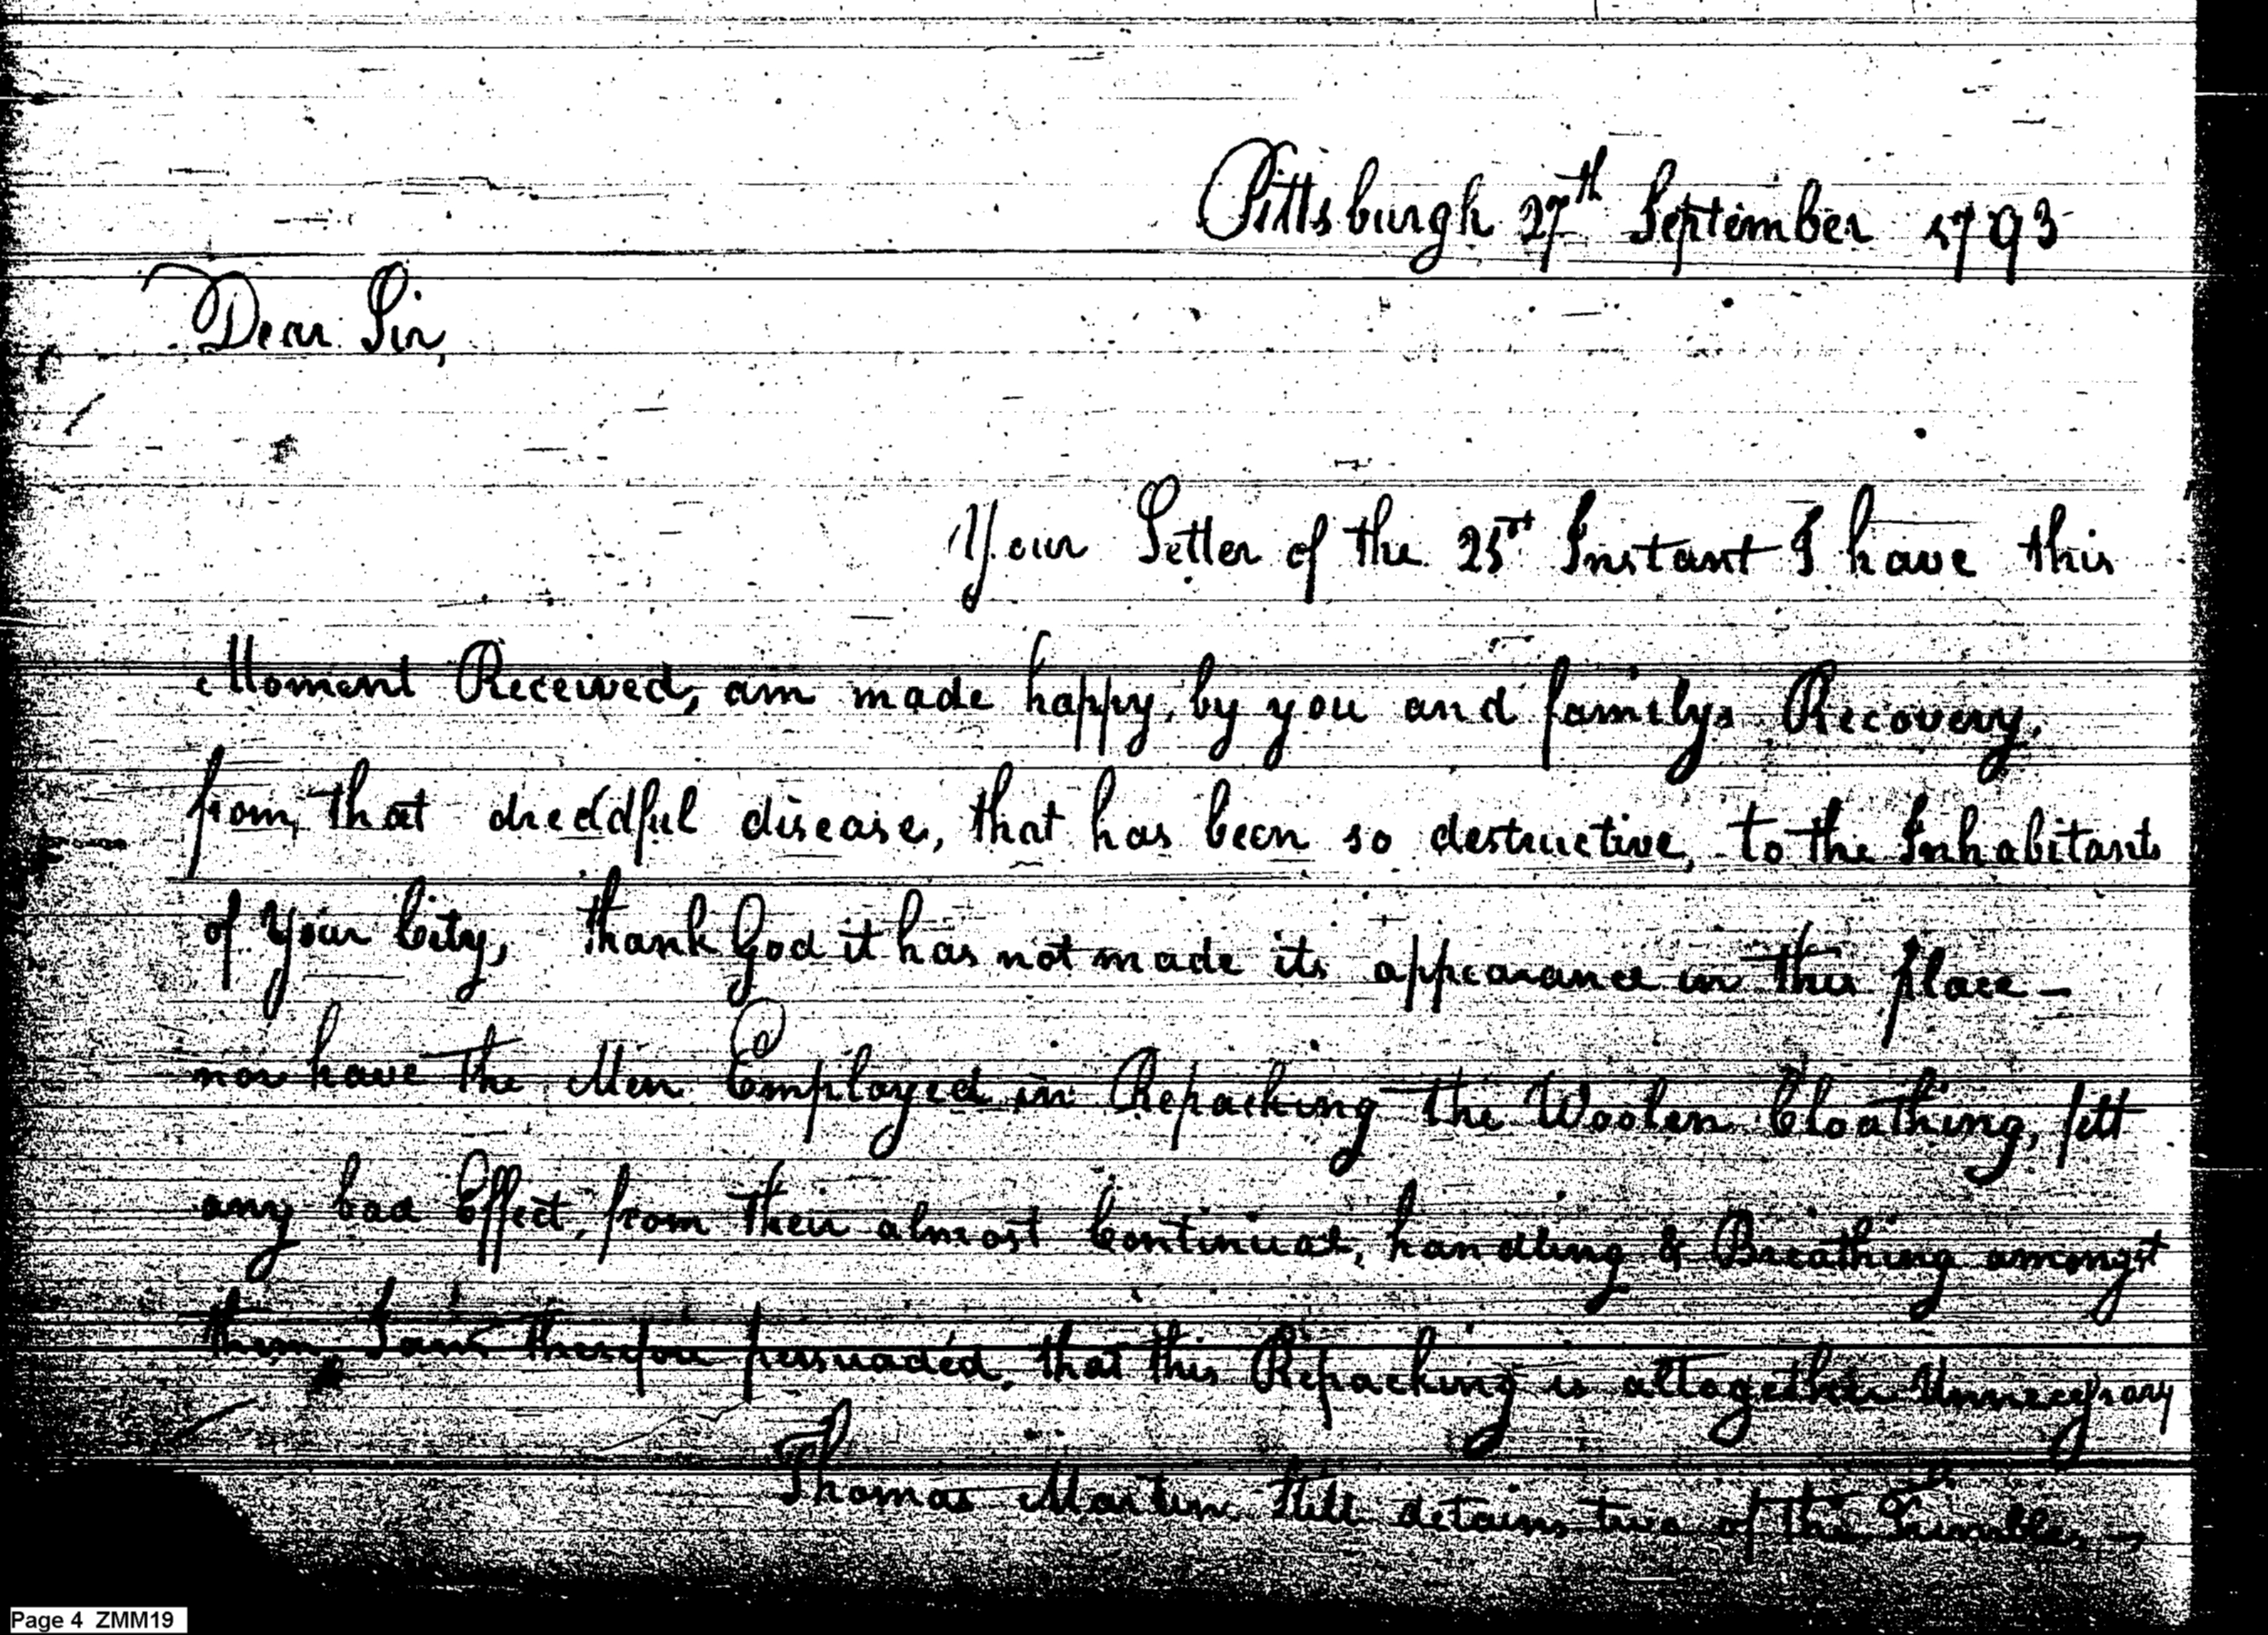 Pittsburgh 27th September 1793
Dear Sir,
Your Letter of the 25st Instant I have this
Moment Received, am made happy, by you and familys Recovery,
from, that dreddful disease, that has been so destructive, to the Inhabitants
of Your City, thank God it has not made its appearance in this place –
nor have the Men Employed in Repacking the Woolen Cloathing, felt
any bad Effect, from their almost Continual, handling & Breathing amongst
them, I am therefore persuaded, that this Repacking is altogether Unnecessary
Thomas Martin still detains two of the
Page 4 ZMM19